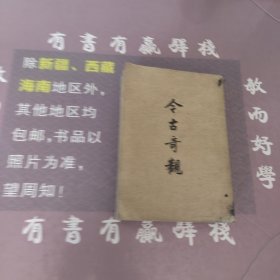 有書有贏驛棧
除新疆、西藏
海南地区外,
其他地区均
包邮,书品以
照片为准,
望周知!
今古奇觀
敏而好學
有書有贏驛棧